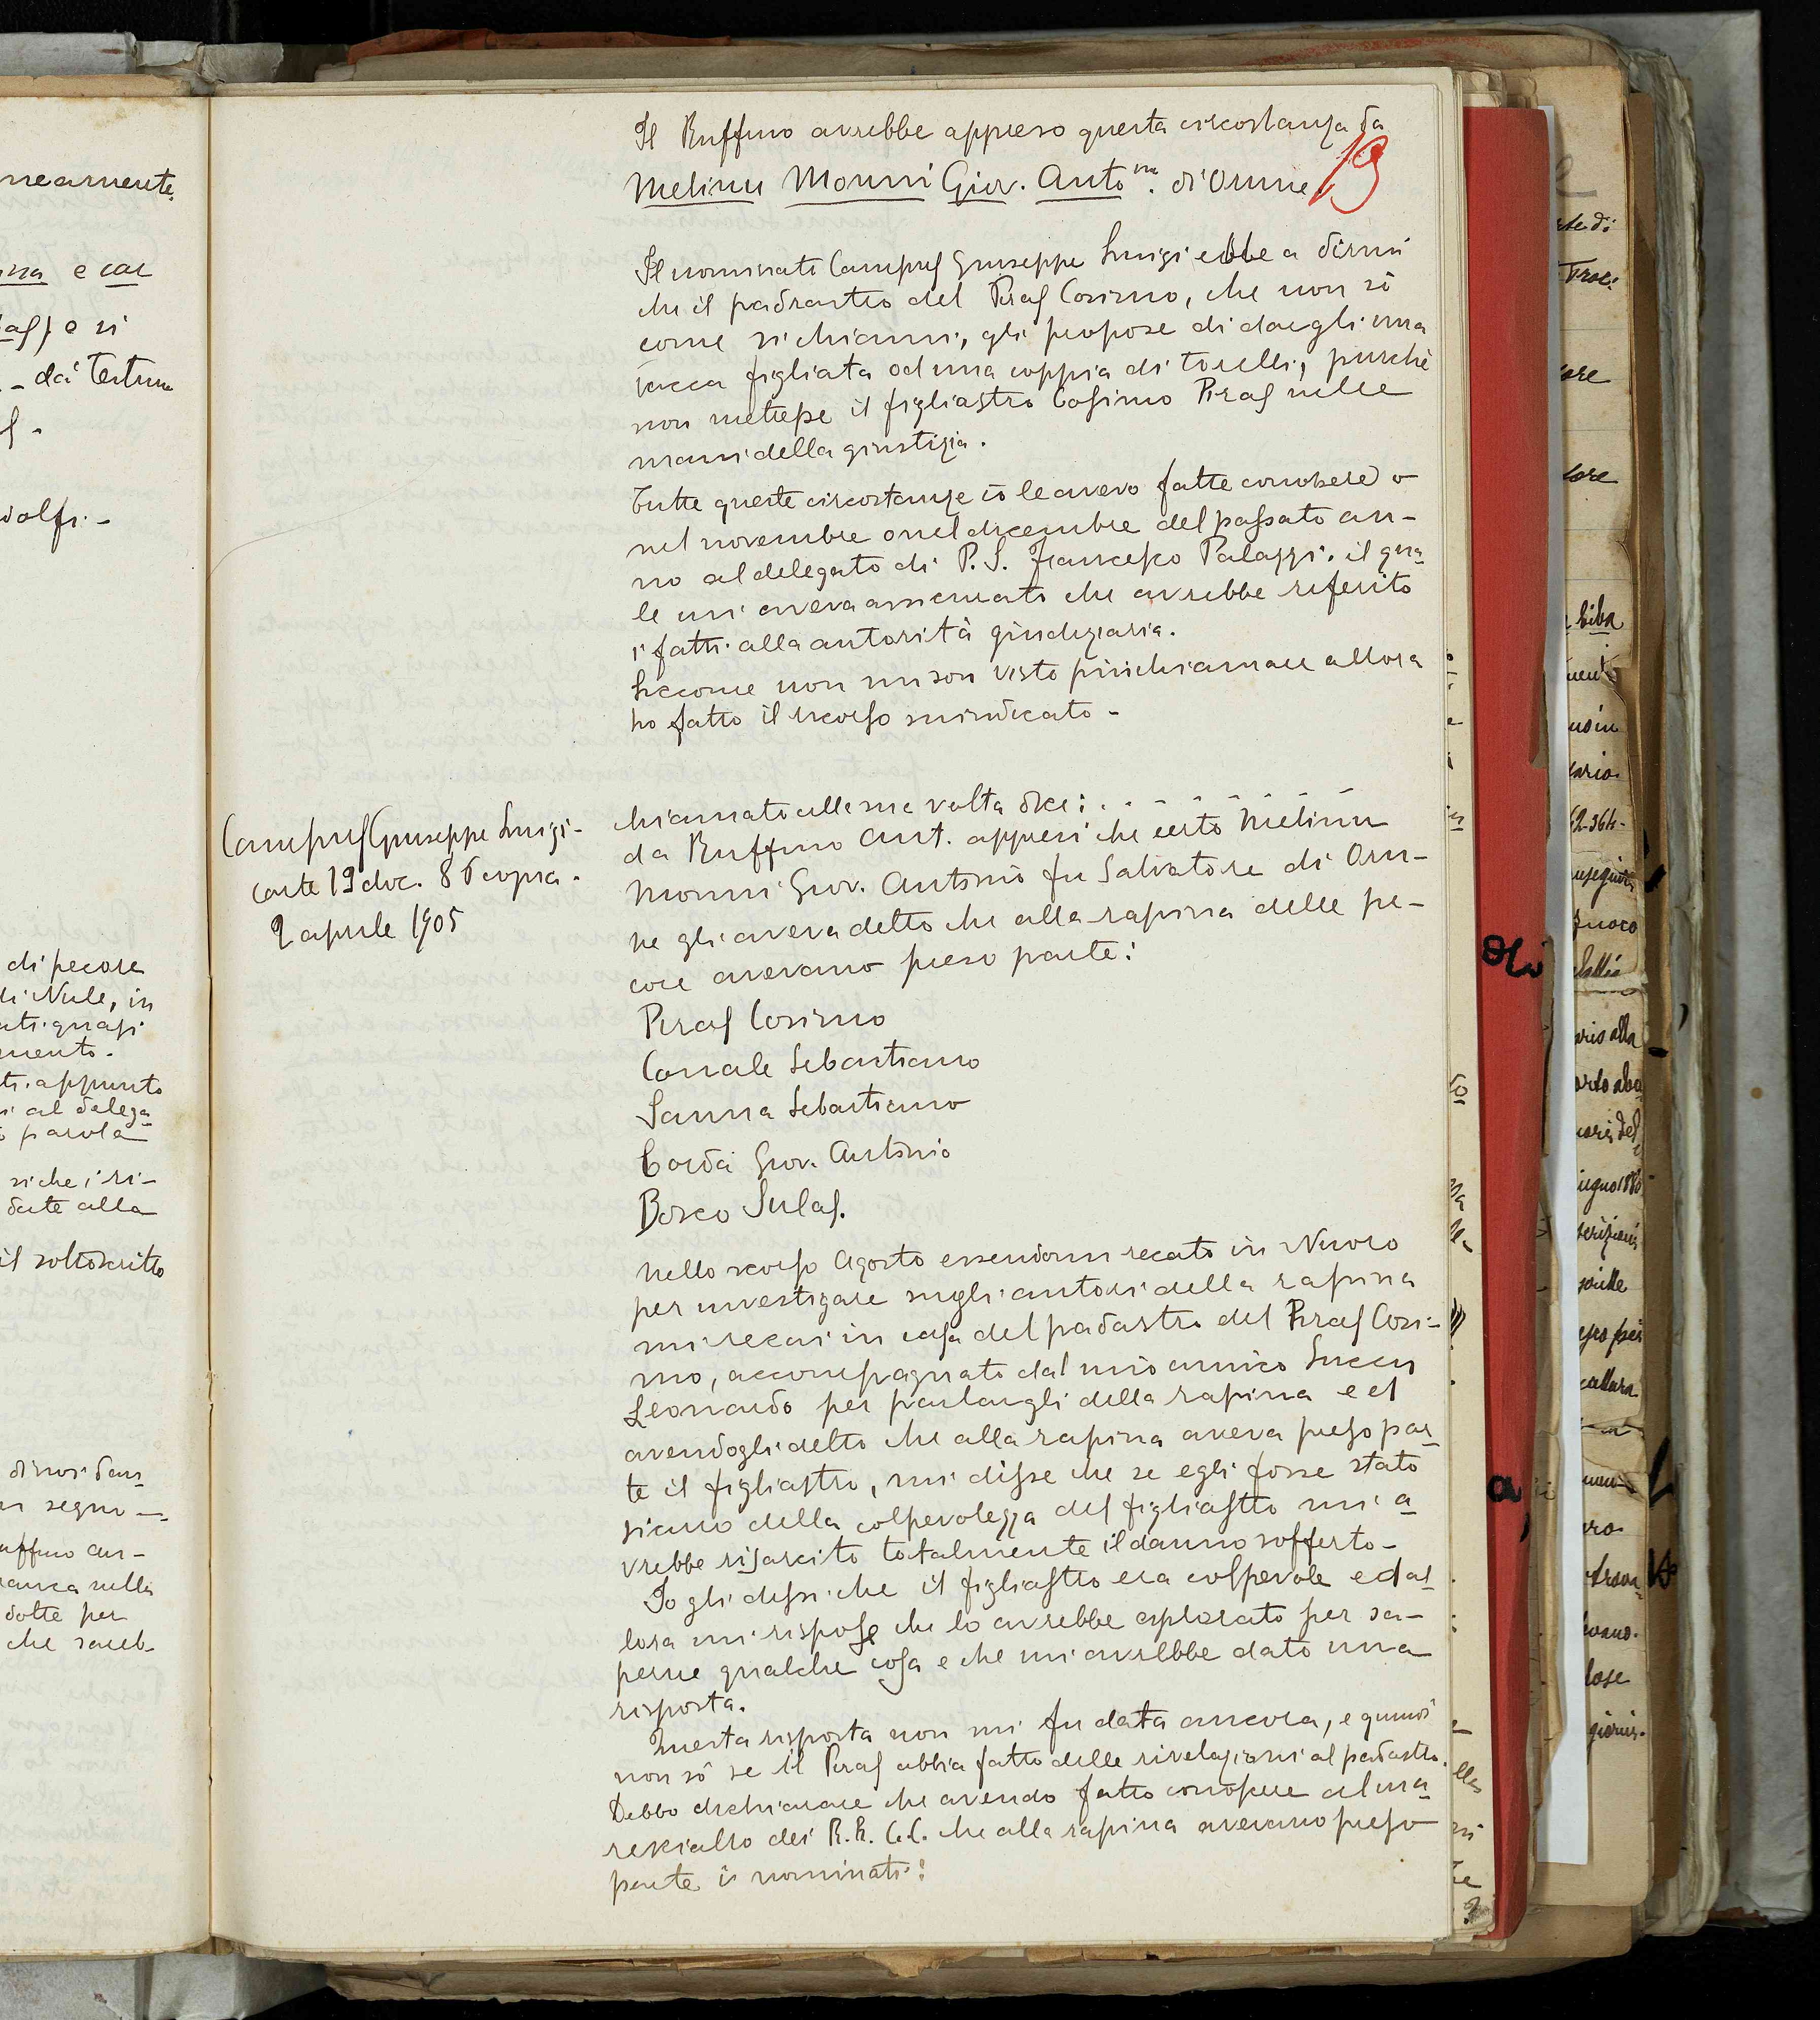 Il Ruffino avrebbe appreso questa circostanza da
Melinu Monni Giov. Anto.ni di Orune.
19
Il nominato Campus Giuseppe Luigi ebbe a dirmi
che il padrastro del Piras Cosimo, che non sò
come si chiami, gli propose di dargli una
vacca figliata od una coppia di torelli, purchè
non mettesse il figliastro Cosimo Piras nelle
mani della giustizia.
Tutte queste circostanze io le avevo fatte conoscere o
nel novembre o nel dicembre del passato an-
no al delegato di P. S. Francesco Palazzi. il qua-
le mi aveva assicurato che avrebbe riferito
i fatti alla autorità giudiziaria.
Siccome non mi son visto più chiamare allora
ho fatto il ricorso suindicato -
Campus Giuseppe Luigi -
carte 19 doc. 86 copia.
2 aprile 1905
chiamato alla sua volta dice: . . - - - - - -
da Ruffino Ant. appresi che certo Melinu
Monni Giov. Antonio fu Salvatore di Oru-
ne gli aveva detto che alla rapina delle pe-
core avevano preso parte:
Piras Cosimo
Corrale Sebastiano
Sanna Sebastiano
Corda Giov. Antonio
Bosco Sulas.
Nello scorso Agosto essendomi recato in Nuoro
per investigare sugli autori della rapina
mi recai in casa del padastro del Piras Cosi-
mo, accompagnato dal mio amico Succu
Leonardo per parlargli della rapina ed
avendogli detto che alla rapina aveva preso par-
te il figliastro, mi disse che se egli fosse stato
sicuro della colpevolezza del figliastro mi a-
vrebbe risarcito totalmente il danno sofferto -
Io gli dissi che il figliastro era colpevole ed al-
lora mi rispose che lo avrebbe esplorato per sa-
perne qualche cosa e che mi avrebbe dato una
risposta.
Questa risposta non mi fu data ancora, e quindi
non sò se il Piras abbia fatto delle rivelazioni al padastro.
Debbo dichiarare che avendo fatto conoscere al ma-
resciallo dei R.R. C.C. che alla rapina avevano preso
parte i nominati: